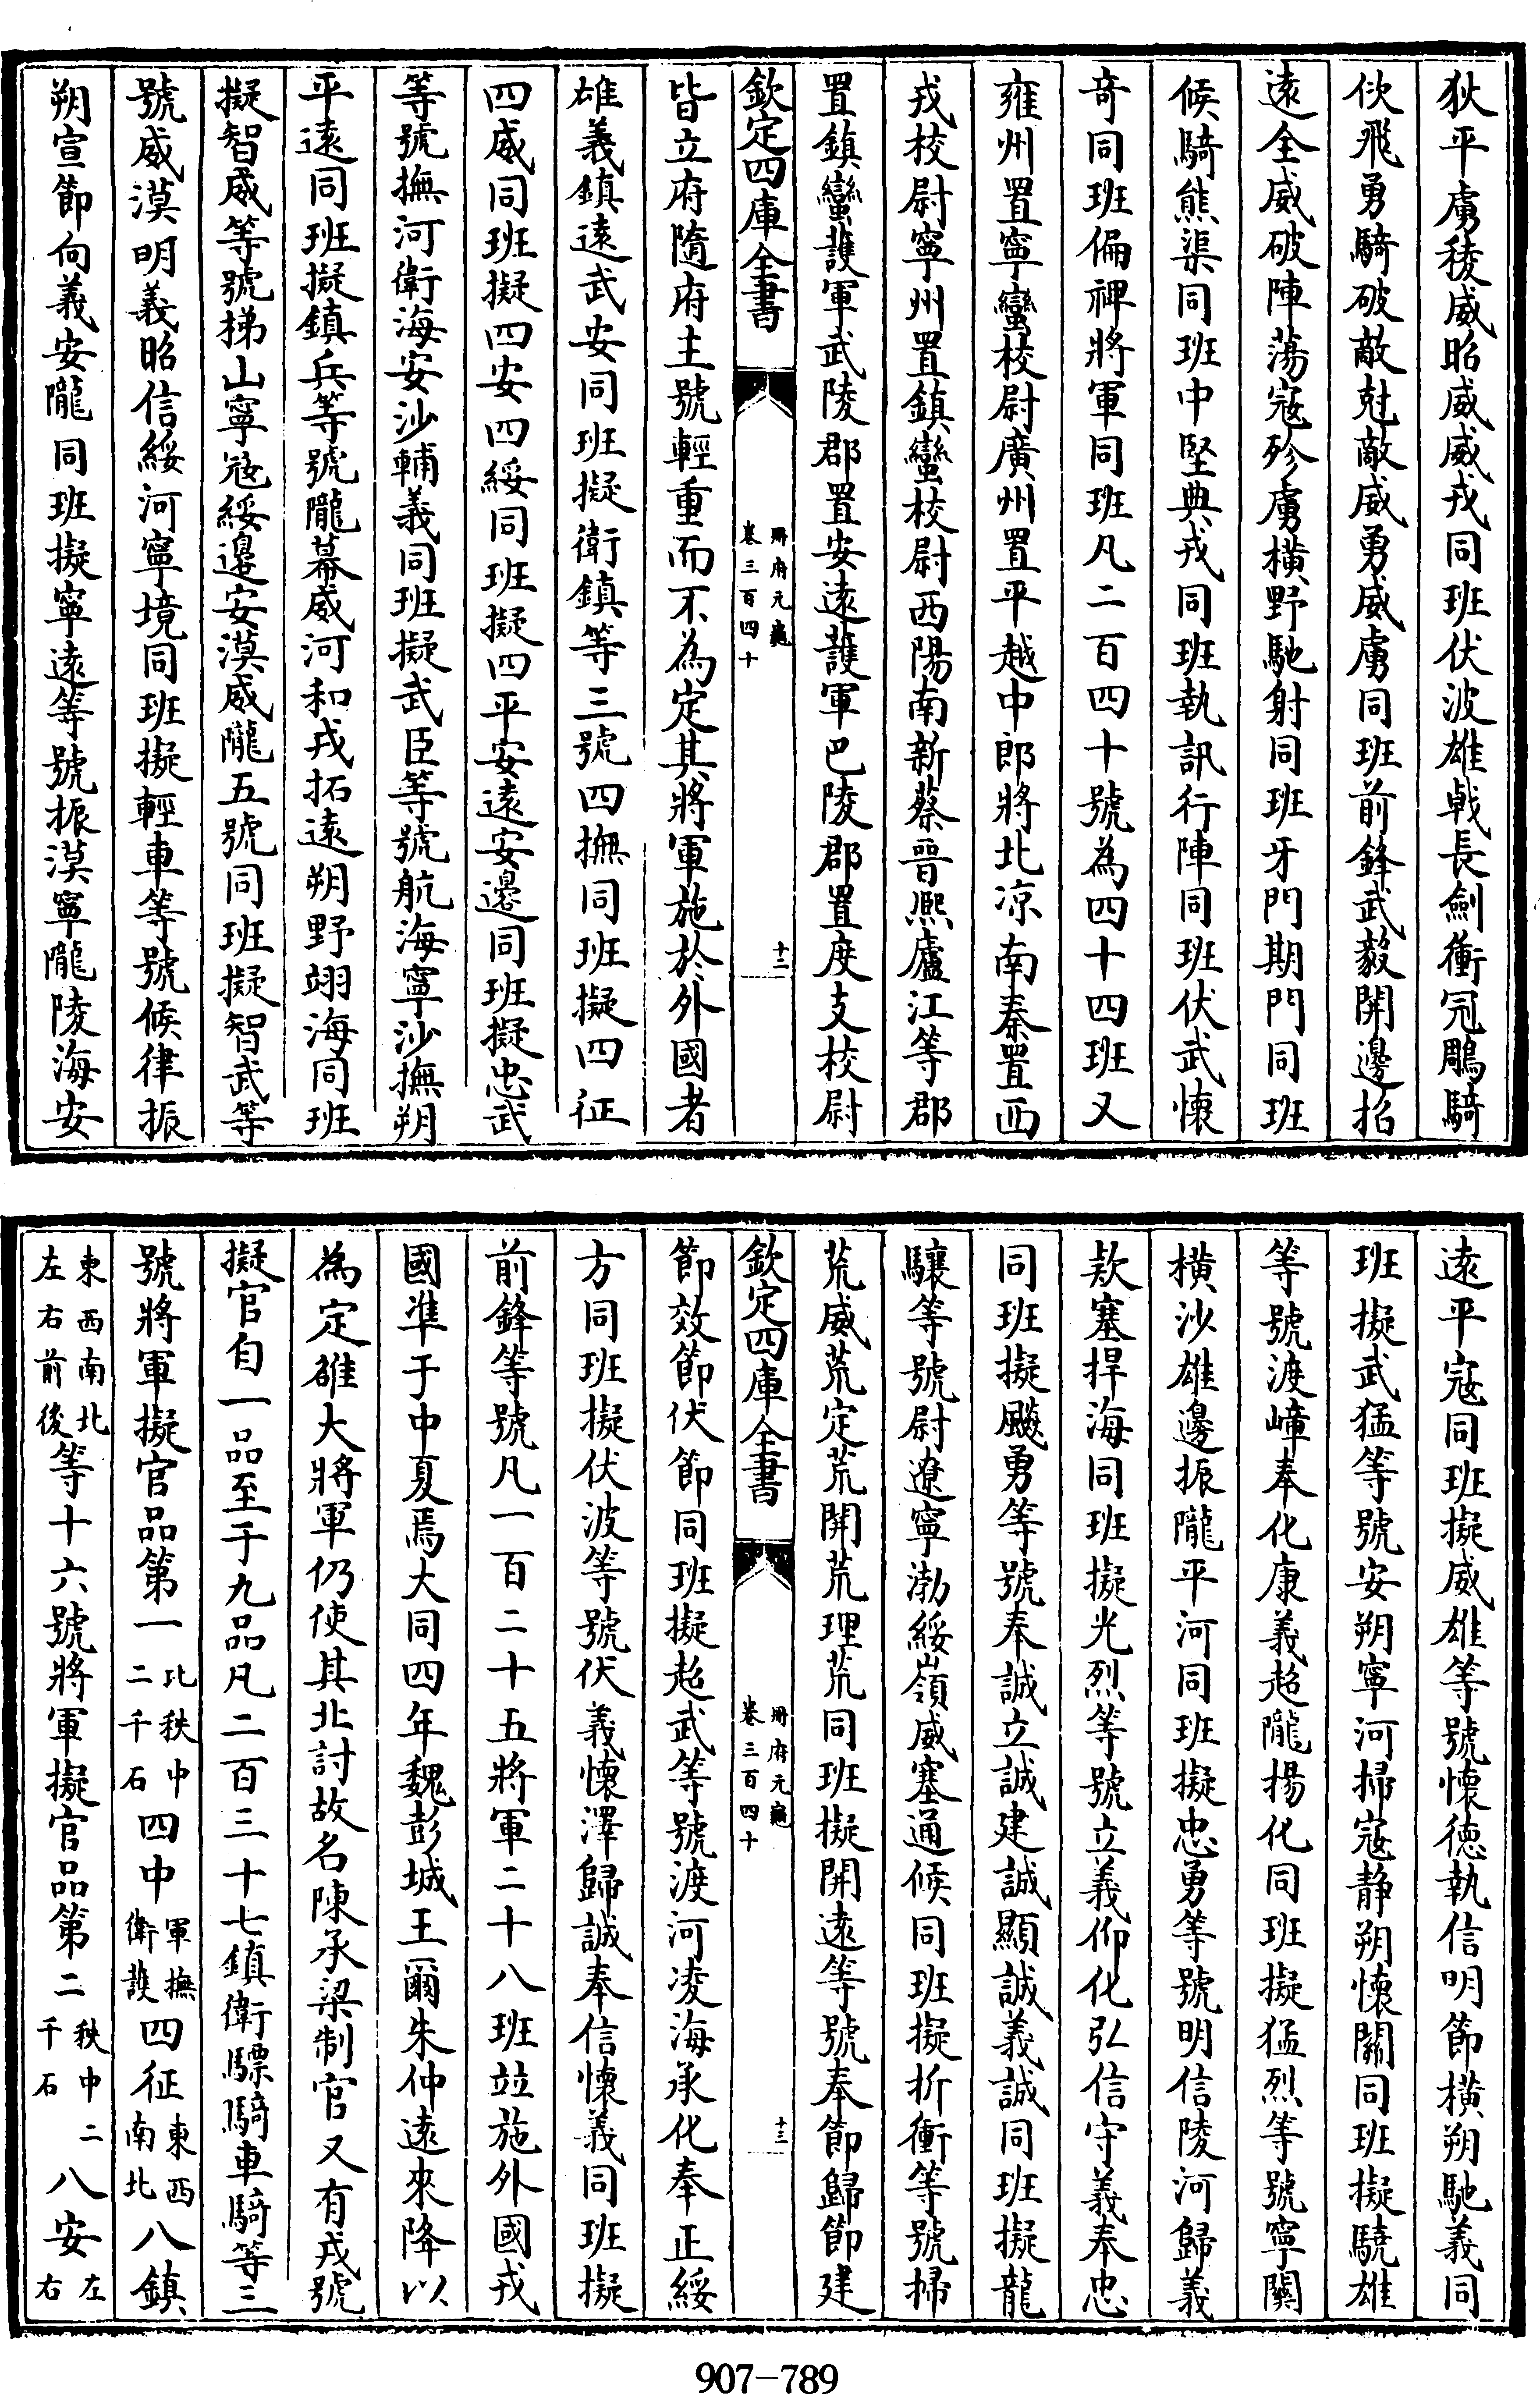 狄平虜稜威昭威威戎同班伏波雄戟長劍衝冠鵰騎
佽飛勇騎破敵尅敵威勇威虜同班前鋒武毅開邊招
遠全威破陣蕩寇殄虜橫野馳射同班牙門期門同班
候騎熊渠同班中堅典戎同班執訊行陣同班伏武懷
竒同班偏裨將軍同班凡二百四十號為四十四班又
雍州置寧蠻校尉廣州置平越中郎將北涼南秦置西
戎校尉寧州置鎮蠻校尉西陽南新蔡晉熈廬江等郡
置鎮蠻護軍武陵郡置安遠護軍巴陵郡置度支校尉
欽定四庫全書
冊府元龜
卷三百四十
十二
皆立府隨府主號輕重而不為定其將軍施於外國者
雄義鎮遠武安同班擬衛鎮等三號四撫同班擬四征
四威同班擬四安四綏同班擬四平安遠安邊同班擬忠武
等號撫河衛海安沙輔義同班擬武臣等號航海寧沙撫朔
平遠同班擬鎮兵等號隴幕威河和戎拓遠朔野翊海同班
擬智威等號梯山寧寇綏邊安漠威隴五號同班擬智武等
號威漠明義昭信綏河寧境同班擬輕車等號候律振
朔宣節向義安隴同班擬寧遠等號振漠寧隴陵海安
遠平寇同班擬威雄等號懷德執信明節橫朔馳義同
班擬武猛等號安朔寧河掃寇靜朔懷關同班擬驍雄
等號渡嶂奉化康義超隴揚化同班擬猛烈等號寧關
橫沙雄邊振隴平河同班擬忠勇等號明信陵河歸義
欵塞捍海同班擬光烈等號立義仰化弘信守義奉忠
同班擬飈勇等號奉誠立誠建誠顯誠義誠同班擬龍
驤等號尉遼寧渤綏嶺威塞通候同班擬折衝等號掃
荒威荒定荒開荒理荒同班擬開遠等號奉節歸節建
欽定四庫全書
冊府元龜
卷三百四十
十三
節效節伏節同班擬超武等號渡河凌海承化奉正綏
方同班擬伏波等號伏義懷澤歸誠奉信懷義同班擬
前鋒等號凡一百二十五將軍二十八班並施外國戎
國準于中夏焉大同四年魏彭城王爾朱仲遠來降以
為定雒大將軍仍使其北討故名陳承梁制官又有戎號
擬官自一品至于九品凡二百三十七鎮衛驃騎車騎等三
號將軍擬官品第一比秩中二千石四中軍撫衛護四征東西南北八鎮
東西南北左右前後等十六號將軍擬官品第二秩中二千石八安左右
907-789